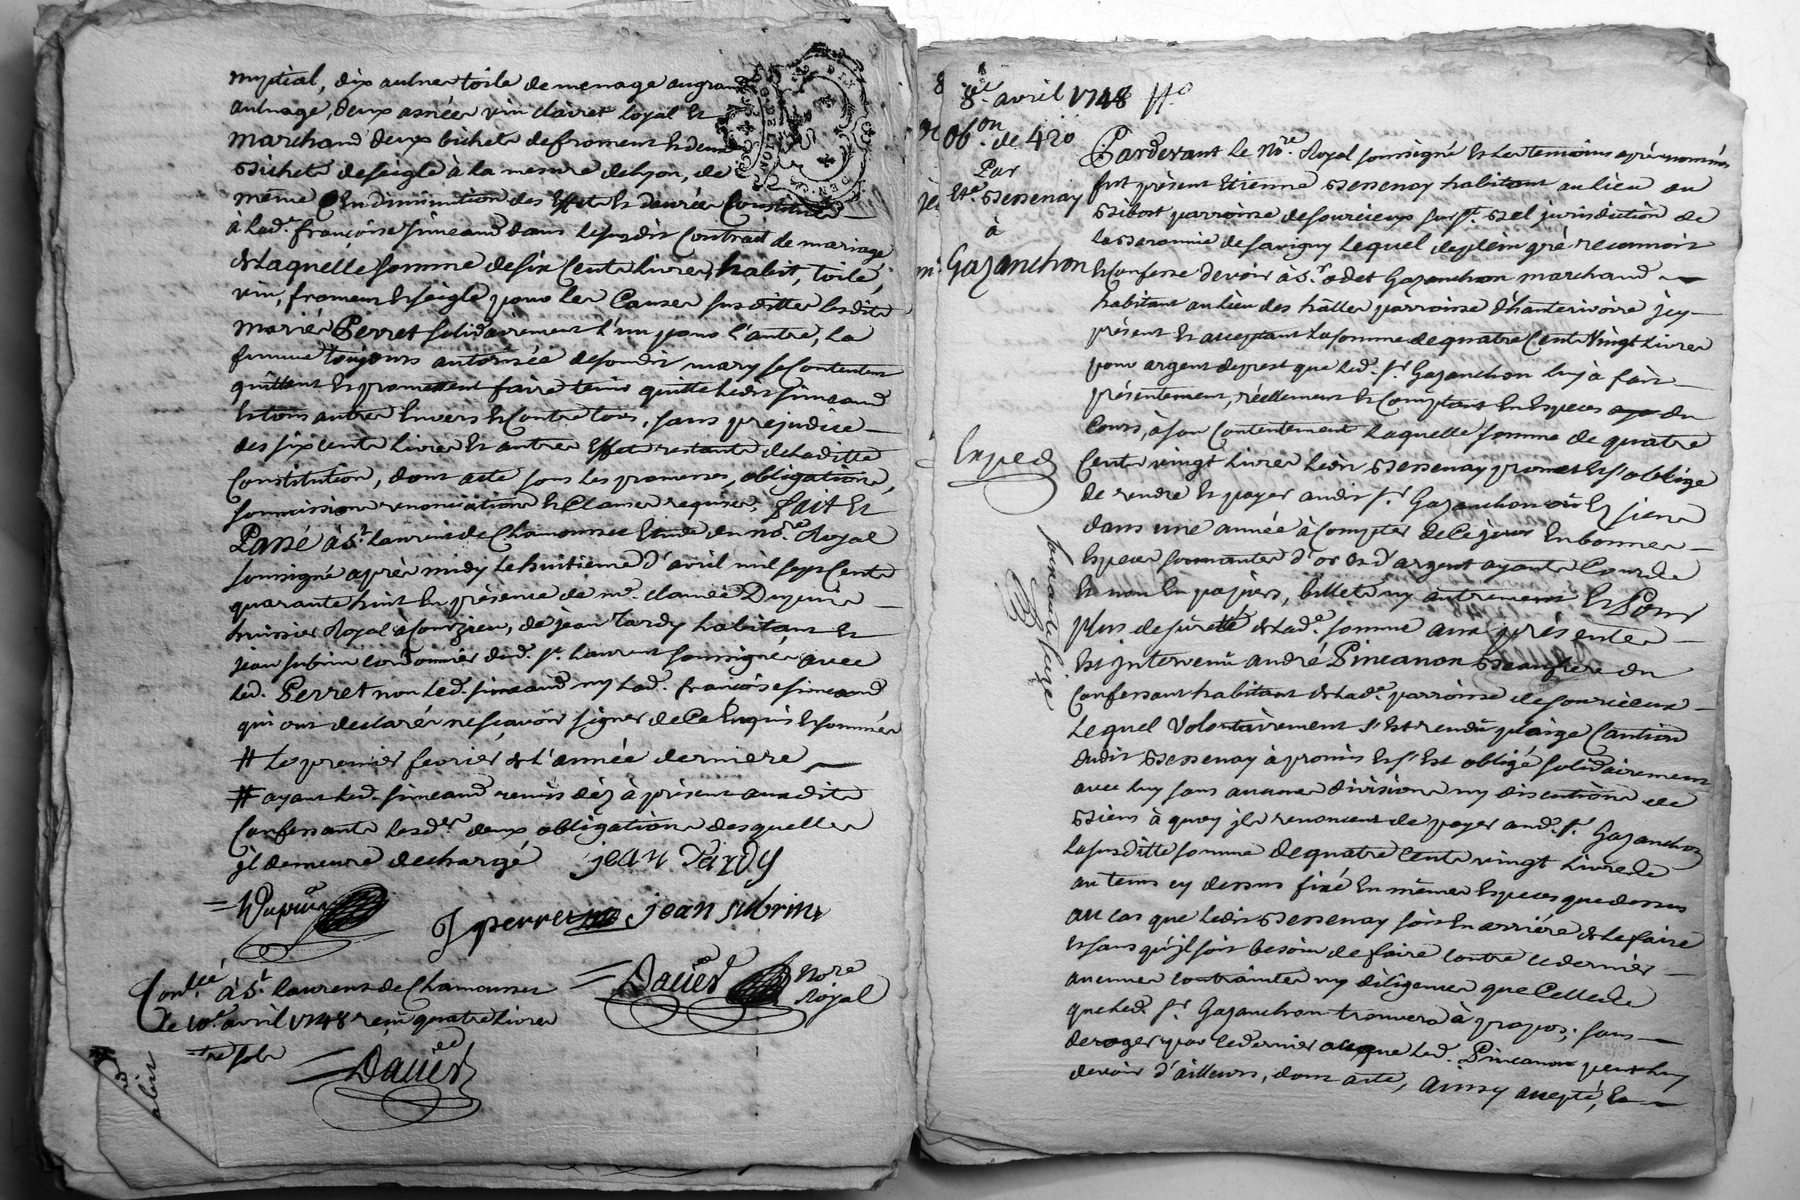 nuptial, dix aulnes toile de menage au grand
aulnage, deux asnées vin clairet loyal et
marchand deux bichets de froment et deux
bichets de seigle à la mesure de lyon, de
même en diminution des effets et denrées constitués
à lad.e françoise simeand dans le susdit contract de mariage
de laquelle somme de six cents livres, habit, toile,
vin, froment et seigle pour les causes sus dittes lesdits
mariés Perret solidairement l'un pour l'autre, la
femme toujours autorisée de sondit mary se contentent
quittent et promettent faire tenir quitte ledit simeand
et tous autres envers et contre tous, sans préjudice
des six cents livres et autres effets restants de laditte
constitution, dont acte sous les promesses, obligations,
soumissions renonciations et clauses requises, fait et
Passé à st. laurent de Chamousset etude du no.re Royal
soussigné après midy le huitieme d'avril mil sept cents
quarante huit en présence de me. Dupuis
huissier Royal à Courzieu, de jean Tardy habitant et
jean subrin cordonnier dud. st. laurent soussignés avec
led. Perret non led. simeand ny lad. françoise simeand
qui ont declarés ne sçavoir signer de ce enquis et sommés
# les premier fevrier de l'année derniere
# ayant led. simeand remis déz à présent auxdits
confessants lesd.es deux obligations desquelles
jl demeure dechargé jean Tardy
Dupuis J perret jean subrin
Davier no.re Royal
Con.llé à st. laurent de Chamousset
le 10.e avril 1748 reçu quatre livres
Davier
8.e avril 1748
Ob.on de 420
Par
Et.e Bessenay
à
Gazanchon
Exped
Pardevant le no.re Royal soussigné et les temoins après nommés
fut présent Etienne Bessenay habitant au lieu du
Bibost parroisse de sourcieux sur st. Bel jurisdiction de
la Baronnie de savigny lequel de plein gré reconnoit
et confesse devoir à sr. odet Gazanchon marchand
habitant au lieu des halles parroisse d'hauterivoire jcy
présent et acceptant la somme de quatre cents vingt livres
pour argent de prest que led. sr. Gazanchon luy à fait
présentement, réellement et comptant en especes du
cours, à son contentement laquelle somme de quatre
cents vingt livres ledit Bessenay promet et s'oblige
de rendre et payer audit sr. Gazanchon ou es siens
dans une année à compter de ce jour en bonnes
especes sonnantes d'or et d'argent ayants cours
et non en papiers, billets ny autrement et Pour
plus de sureté de lad.e somme aux présentes
est jntervenu andré Pincanon Beaufrere du
confessant habitant de lad.e parroisse de sourcieux
lequel volontairement s'est rendu plaige caution
dudit Bessenay à promis et s'est obligé solidairement
avec luy sans aucune division ny discution de
biens à quoy jls renoncent de payer aud. sr. Gazanchon
la susditte somme de quatre cents vingt livres
au tems cy dessus fixé en mêmes especes que dessus
au cas que ledit Bessenay soit en arriére de le faire
et sans qu'jl soit besoin de faire contre ce dernier
aucunes contraintes ny diligences que celles
que led. sr. Gazanchon trouvera à propos; sans
deroger par ce dernier à ce que led. Pincanon peut luy
devoir d'ailleurs, dont acte, ainsy accepté, et